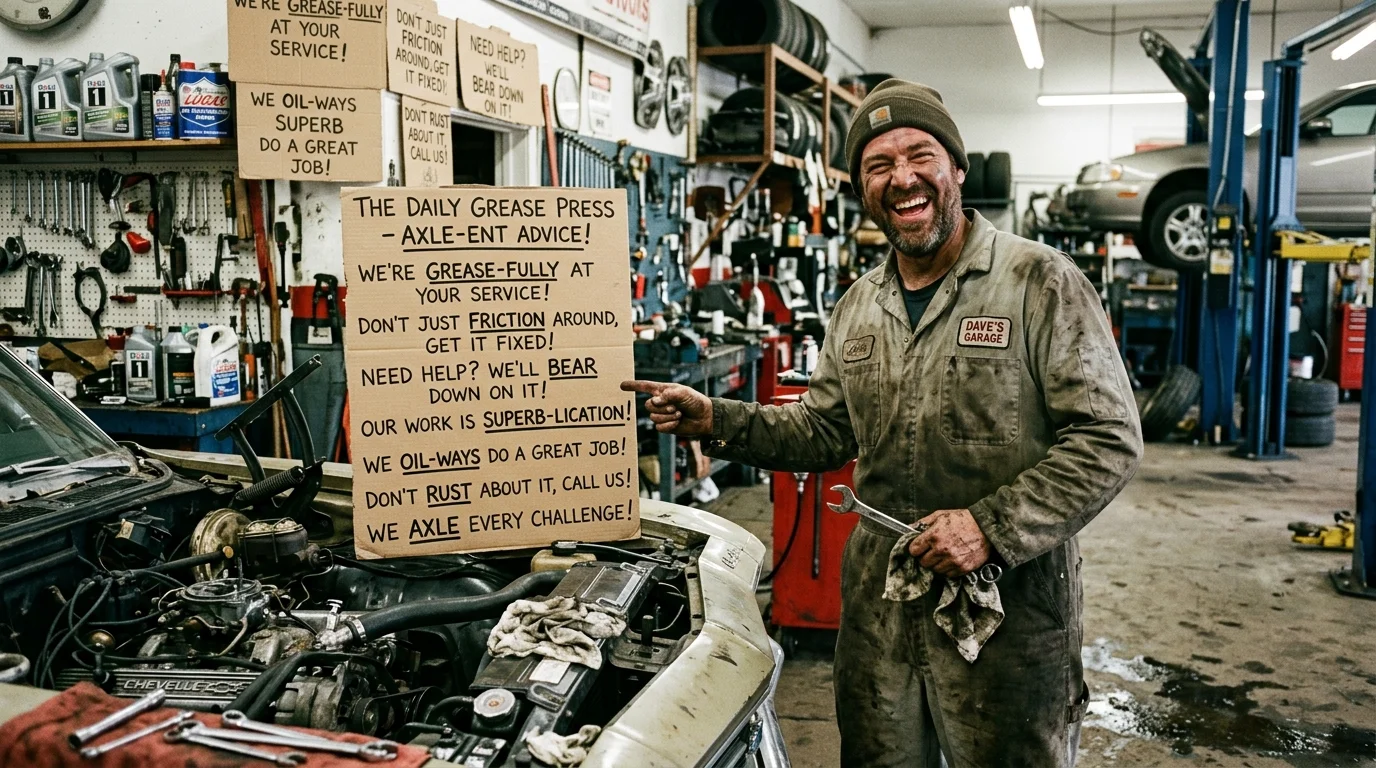 WE'RE GREASE-FULLY
AT YOUR
SERVICE!
DON'T JUST
FRICTION
AROUND, GET
IT FIXED!
NEED HELP?
WE'LL
BEAR DOWN
ON IT!
WE OIL-WAYS
SUPERB
DO A GREAT
JOB!
DON'T RUST
ABOUT IT,
CALL US!
THE DAILY GREASE PRESS
– AXLE-ENT ADVICE!
WE'RE GREASE-FULLY AT
YOUR SERVICE!
DON'T JUST FRICTION AROUND,
GET IT FIXED!
NEED HELP? WE'LL BEAR
DOWN ON IT!
OUR WORK IS SUPERB-LICATION!
WE OIL-WAYS DO A GREAT JOB!
DON'T RUST ABOUT IT, CALL US!
WE AXLE EVERY CHALLENGE!
DAVE'S
GARAGE
CHEVELLE